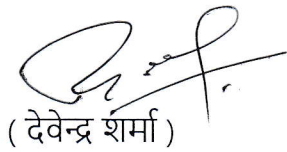 ( देवेन्द्र शर्मा )